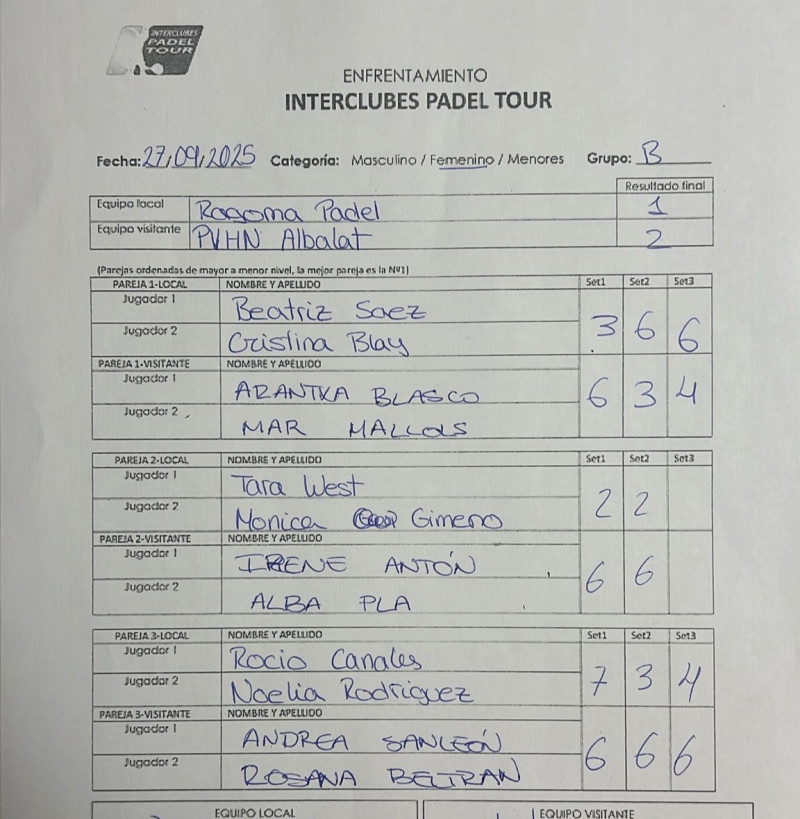 INTERCLUBES
PADEL
TOUR
ENFRENTAMIENTO
INTERCLUBES PADEL TOUR
Fecha: 27/09/2025 Categoría: Masculino / Femenino / Menores Grupo: B
Resultado final
Equipo local Rocoma Padel 1
Equipo visitante PVHN Albalat 2
(Parejas ordenadas de mayor a menor nivel, la mejor pareja es la Nº1)
PAREJA 1-LOCAL NOMBRE Y APELLIDO Set1 Set2 Set3
Jugador 1 Beatriz Saez
Jugador 2 Cristina Blay 3 6 6
PAREJA 1-VISITANTE NOMBRE Y APELLIDO
Jugador 1 ARANTXA BLASCO 6 3 4
Jugador 2 MAR MALLOLS
PAREJA 2-LOCAL NOMBRE Y APELLIDO Set1 Set2 Set3
Jugador 1 Tara West
Jugador 2 Monica Gimeno 2 2
PAREJA 2-VISITANTE NOMBRE Y APELLIDO
Jugador 1 IRENE ANTÓN 6 6
Jugador 2 ALBA PLA
PAREJA 3-LOCAL NOMBRE Y APELLIDO Set1 Set2 Set3
Jugador 1 Rocio Canales
Jugador 2 Noelia Rodriguez 7 3 4
PAREJA 3-VISITANTE NOMBRE Y APELLIDO
Jugador 1 ANDREA SANLEÓN 6 6 6
Jugador 2 ROSANA BELTRAN
EQUIPO LOCAL EQUIPO VISITANTE